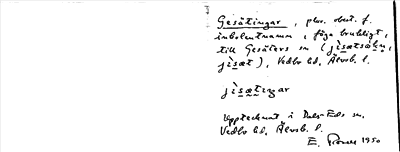 Gesätingar, plur. best. f.
inbolentnamn, föga brukligt,
till Gesäters sn (jisætsåkn,
jisæt), Vedbo hd, Älvsb. l.
jisætingar
Upptecknat i Dals-Eds sn,
Vedbo hd, Älvsb. l.
E. 1950